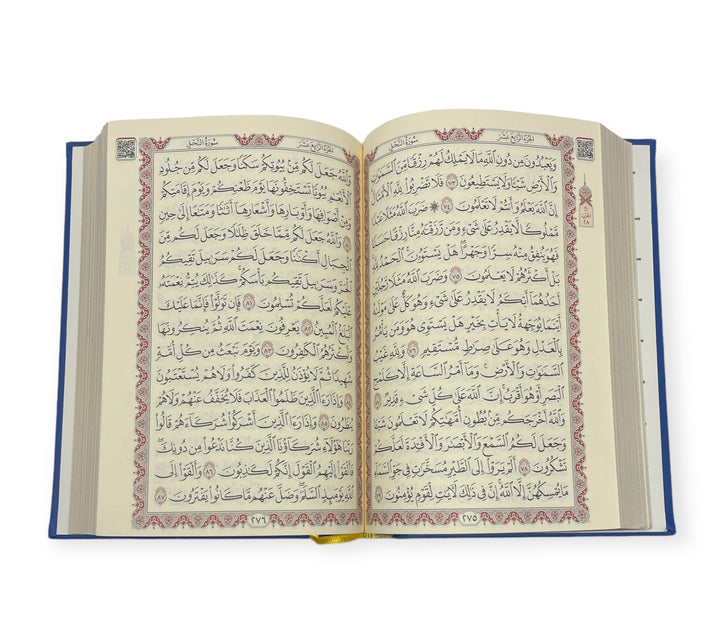 الجزء الرابع عشر
سورة النحل
وَيَعْبُدُونَ مِن دُونِ ٱللَّهِ مَا لَا يَمْلِكُ لَهُمْ رِزْقًا مِّنَ ٱلسَّمَٰوَٰتِ
وَٱلْأَرْضِ شَيْـًٔا وَلَا يَسْتَطِيعُونَ ٧٣ فَلَا تَضْرِبُوا۟ لِلَّهِ ٱلْأَمْثَالَ
إِنَّ ٱللَّهَ يَعْلَمُ وَأَنتُمْ لَا تَعْلَمُونَ ٧٤ ۞ ضَرَبَ ٱللَّهُ مَثَلًا عَبْدًا
مَّمْلُوكًا لَّا يَقْدِرُ عَلَىٰ شَىْءٍ وَمَن رَّزَقْنَٰهُ مِنَّا رِزْقًا حَسَنًا
فَهُوَ يُنفِقُ مِنْهُ سِرًّا وَجَهْرًا ۖ هَلْ يَسْتَوُۥنَ ۚ ٱلْحَمْدُ لِلَّهِ ۚ
بَلْ أَكْثَرُهُمْ لَا يَعْلَمُونَ ٧٥ وَضَرَبَ ٱللَّهُ مَثَلًا رَّجُلَيْنِ
أَحَدُهُمَآ أَبْكَمُ لَا يَقْدِرُ عَلَىٰ شَىْءٍ وَهُوَ كَلٌّ عَلَىٰ مَوْلَىٰهُ
أَيْنَمَا يُوَجِّههُّ لَا يَأْتِ بِخَيْرٍ ۖ هَلْ يَسْتَوِى هُوَ وَمَن يَأْمُرُ
بِٱلْعَدْلِ ۙ وَهُوَ عَلَىٰ صِرَٰطٍ مُّسْتَقِيمٍ ٧٦ وَلِلَّهِ غَيْبُ
ٱلسَّمَٰوَٰتِ وَٱلْأَرْضِ ۚ وَمَآ أَمْرُ ٱلسَّاعَةِ إِلَّا كَلَمْحِ
ٱلْبَصَرِ أَوْ هُوَ أَقْرَبُ ۚ إِنَّ ٱللَّهَ عَلَىٰ كُلِّ شَىْءٍ قَدِيرٌ ٧٧
وَٱللَّهُ أَخْرَجَكُم مِّنۢ بُطُونِ أُمَّهَٰتِكُمْ لَا تَعْلَمُونَ شَيْـًٔا
وَجَعَلَ لَكُمُ ٱلسَّمْعَ وَٱلْأَبْصَٰرَ وَٱلْأَفْـِٔدَةَ ۙ لَعَلَّكُمْ
تَشْكُرُونَ ٧٨ أَلَمْ يَرَوْا۟ إِلَى ٱلطَّيْرِ مُسَخَّرَٰتٍ فِى جَوِّ ٱلسَّمَآءِ
مَا يُمْسِكُهُنَّ إِلَّا ٱللَّهُ ۗ إِنَّ فِى ذَٰلِكَ لَءَايَٰتٍ لِّقَوْمٍ يُؤْمِنُونَ ٧٩
٢٧٥
الحزب
٢٨
الجزء الرابع عشر
سورة النحل
وَٱللَّهُ جَعَلَ لَكُم مِّنۢ بُيُوتِكُمْ سَكَنًا وَجَعَلَ لَكُم مِّن جُلُودِ
ٱلْأَنْعَٰمِ بُيُوتًا تَسْتَخِفُّونَهَا يَوْمَ ظَعْنِكُمْ وَيَوْمَ إِقَامَتِكُمْ ۙ
وَمِنْ أَصْوَافِهَا وَأَوْبَارِهَا وَأَشْعَارِهَآ أَثَٰثًا وَمَتَٰعًا إِلَىٰ حِينٍ
٨٠ وَٱللَّهُ جَعَلَ لَكُم مِّمَّا خَلَقَ ظِلَٰلًا وَجَعَلَ لَكُم مِّنَ
ٱلْجِبَالِ أَكْنَٰنًا وَجَعَلَ لَكُمْ سَرَٰبِيلَ تَقِيكُمُ
ٱلْحَرَّ وَسَرَٰبِيلَ تَقِيكُم بَأْسَكُمْ ۚ كَذَٰلِكَ يُتِمُّ نِعْمَتَهُۥ
عَلَيْكُمْ لَعَلَّكُمْ تُسْلِمُونَ ٨١ فَإِن تَوَلَّوْا۟ فَإِنَّمَا عَلَيْكَ
ٱلْبَلَٰغُ ٱلْمُبِينُ ٨٢ يَعْرِفُونَ نِعْمَتَ ٱللَّهِ ثُمَّ يُنكِرُونَهَا
وَأَكْثَرُهُمُ ٱلْكَٰفِرُونَ ٨٣ وَيَوْمَ نَبْعَثُ مِن كُلِّ أُمَّةٍ
شَهِيدًا ثُمَّ لَا يُؤْذَنُ لِلَّذِينَ كَفَرُوا۟ وَلَا هُمْ يُسْتَعْتَبُونَ
٨٤ وَإِذَا رَءَا ٱلَّذِينَ ظَلَمُوا۟ ٱلْعَذَابَ فَلَا يُخَفَّفُ عَنْهُمْ وَلَا هُمْ
يُنظَرُونَ ٨٥ وَإِذَا رَءَا ٱلَّذِينَ أَشْرَكُوا۟ شُرَكَآءَهُمْ قَالُوا۟
رَبَّنَا هَٰٓؤُلَآءِ شُرَكَآؤُنَا ٱلَّذِينَ كُنَّا نَدْعُوا۟ مِن دُونِكَ ۖ
فَأَلْقَوْا۟ إِلَيْهِمُ ٱلْقَوْلَ إِنَّكُمْ لَكَٰذِبُونَ ٨٦ وَأَلْقَوْا۟ إِلَى
ٱللَّهِ يَوْمَئِذٍ ٱلسَّلَمَ ۖ وَضَلَّ عَنْهُم مَّا كَانُوا۟ يَفْتَرُونَ ٨٧
٢٧٦